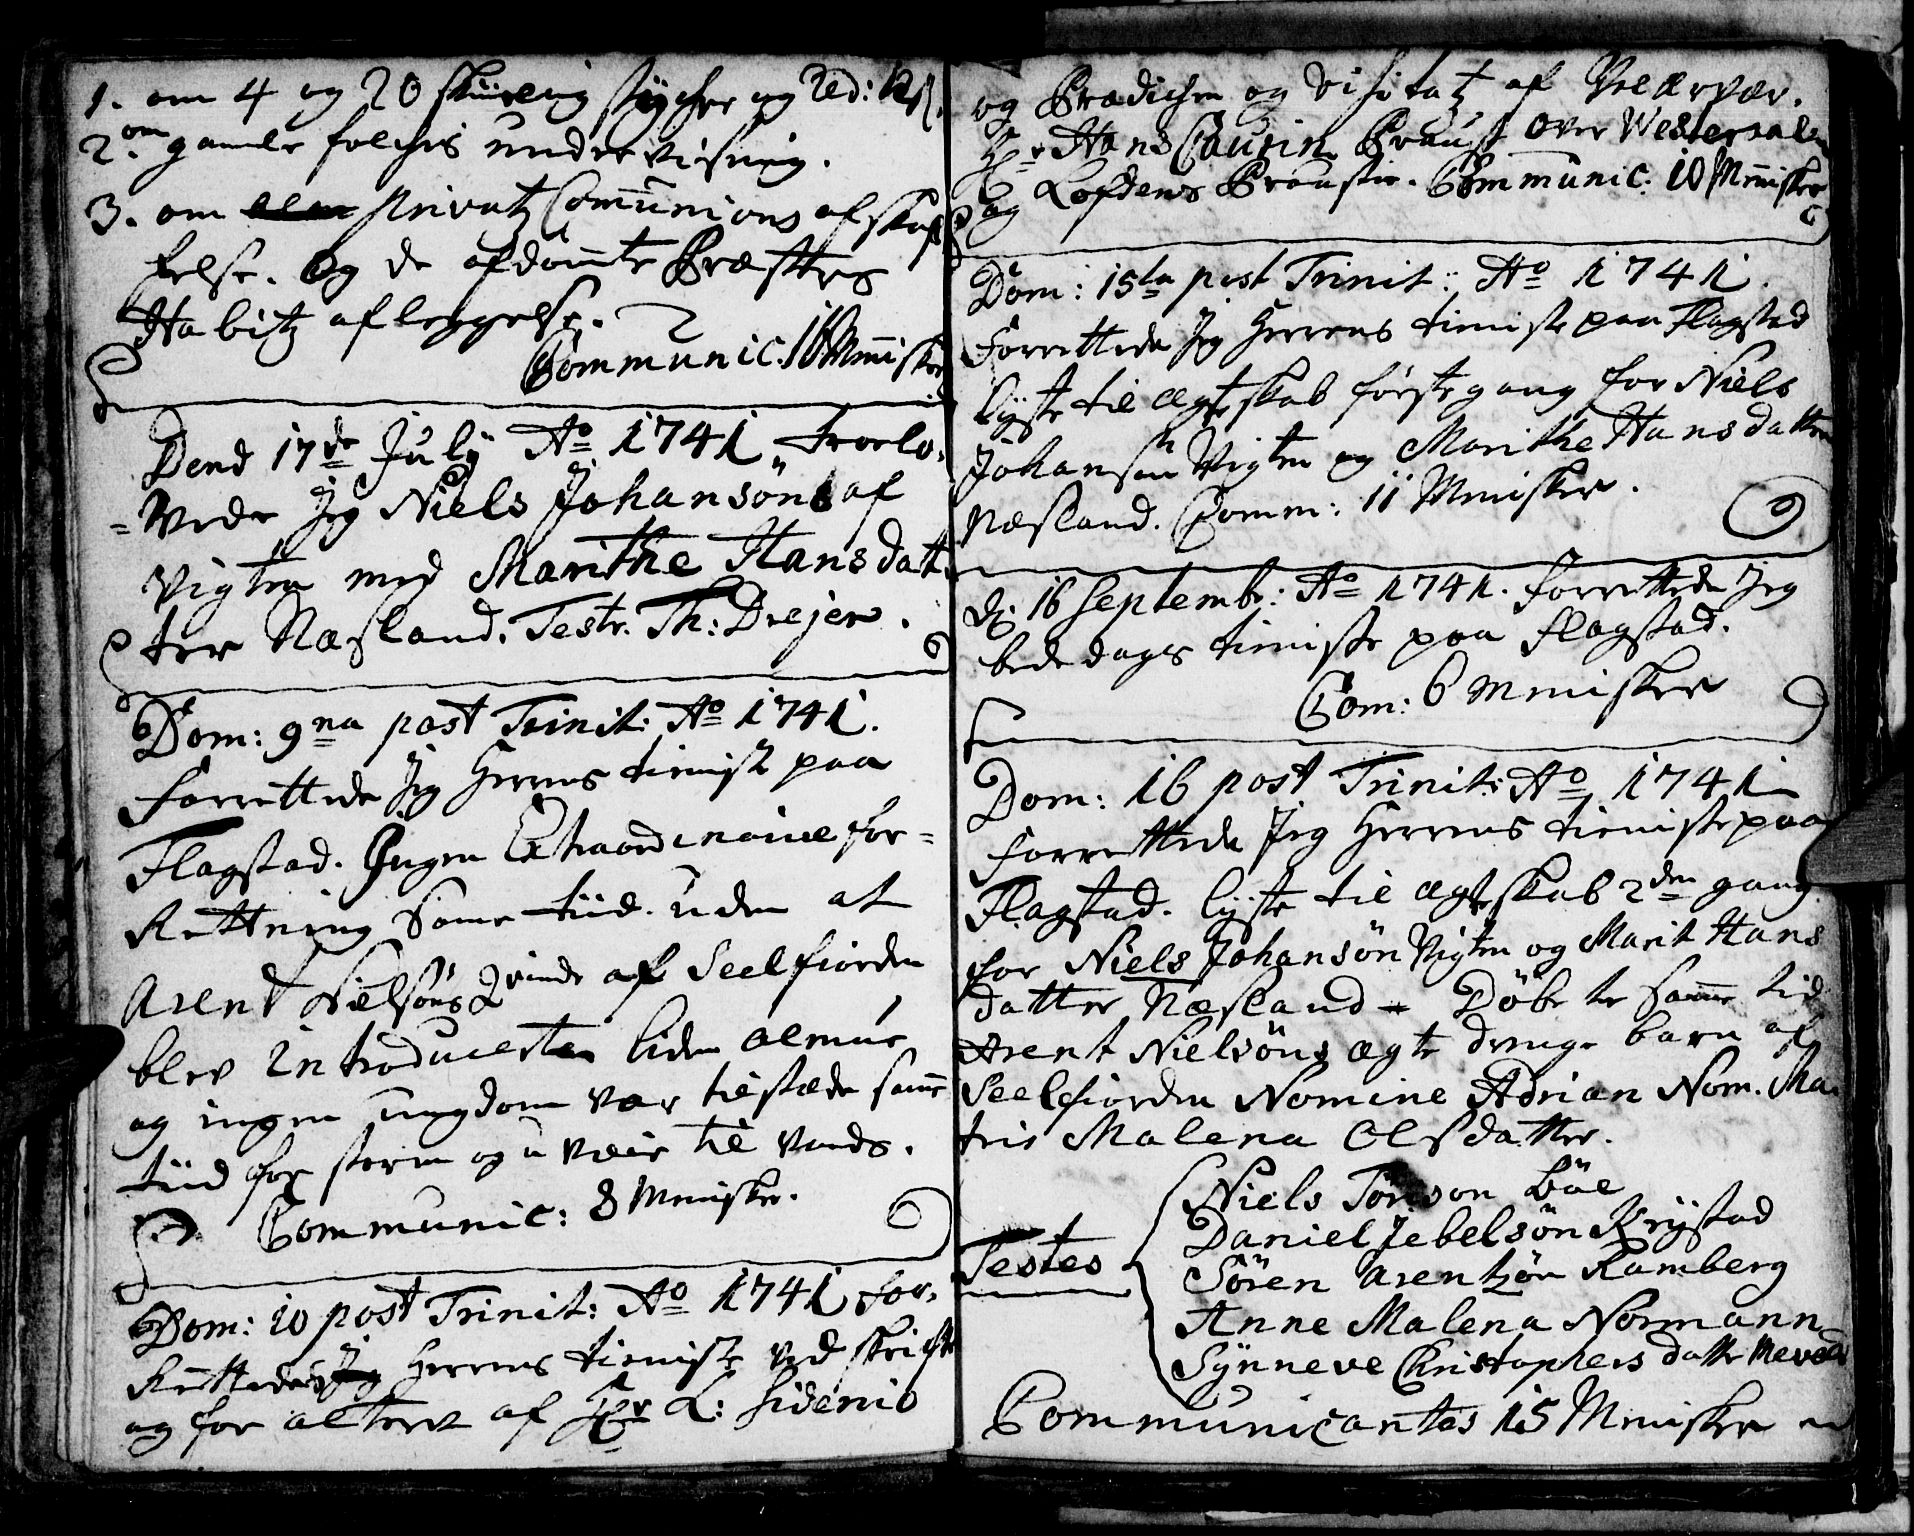 1. om 4 og 20 skilling stycher og Red: 12 ß.
2. om gamle folchis undervisning.
3. om privatz Communions afskaf
felse. Og de afdømte Præsters
Habitz aflæggelse.
Communic. 16 Mnisker
Dend 17de July Ao 1741, troelo,
=vede Jeg Niels Johansøn af
Vigten med Marithe Hansdat,
ter Næsland. Testr. Th: Drejer.
Dom: 9na post Trinit: Ao 1741.
forrettede Jeg Herrens tieniste paa
Flagstad. Ingen Extraordinaire for=
Rettning Same tiid. uden at
Arent Nielsøns Qvinde af Seelfiorden
blev introducert liden almue
og ingen ungdom var tilstæde same
tiid for storm og u veir til vands.
Communic: 8 Mnisker.
Dom: 10 post Trinit: Ao 1741 for,
Rettede Herrens tieniste ved skrifte
og for alteret af Hr L: Sidenio
og Prædichen og visitatz af Velærvær.
Hr Hans Cousin Proust over Westeraalen
og Lofodens Proustie. Communic: 10 Mnisker
Dom: 15ta post Trinit: Ao 1741.
Forrettede Jeg Herrens tieniste paa Flagstad
lyste til ægteskab første gang for Niels
Johansøn Vigten og Marithe Hansdatter
Næsland. Comm: 11 Mnisker.
D. 16 Septembr: Ao 1741. forrettede Jeg
bededags tieniste paa Flagstad.
Com: 6 Mnisker
Dom: 16 post Trinit: Ao 1741
Forrettede Jeg Herrens tieniste paa
Flagstad. lyste til ægteskab 2den gang
for Niels Johansøn Vigten og Marit Hans
datter Næsland - Døbte same tid
Arent Nielsøns ægte drenge barn af
Seelfiorden Nomine Adrian Nom. Ma,
tris Malena Olsdatter.
Testes
Niels Tørison Böe
Daniel Jebelsøn Krystad
Søren Arentzøn Ramberg
Anne Malena Normann
Synneve Christophersdatter
Communicantes 15 Mnisker